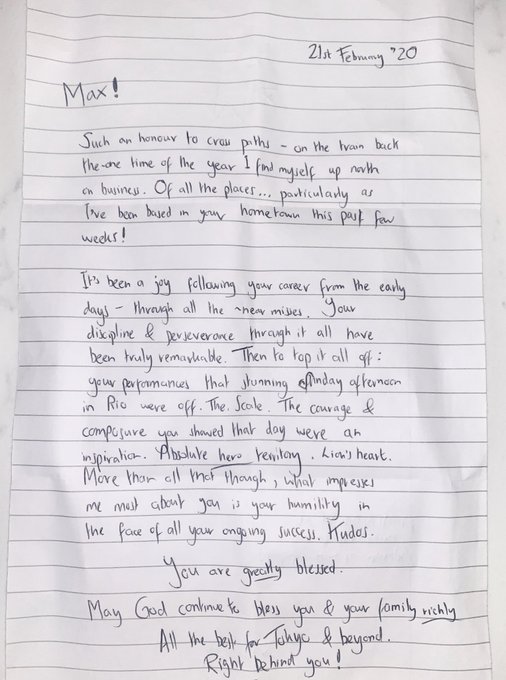 21st February '20
Max!
Such an honour to cross paths – on the train back
the one time of the year I find myself up north
on business. Of all the places... particularly as
I've been based in your hometown this past few
weeks!
It's been a joy following your career from the early
days – through all the near misses. Your
discipline & perseverance through it all have
been truly remarkable. Then to top it all off:
your performances that stunning Sunday afternoon
in Rio were off. The. Scale. The courage &
composure you showed that day were an
inspiration. Absolute hero territory. Lion's heart.
More than all that though, what impresses
me most about you is your humility in
the face of all your ongoing success. Kudos.
You are greatly blessed.
May God continue to bless you & your family richly
All the best for Tokyo & beyond.
Right behind you!